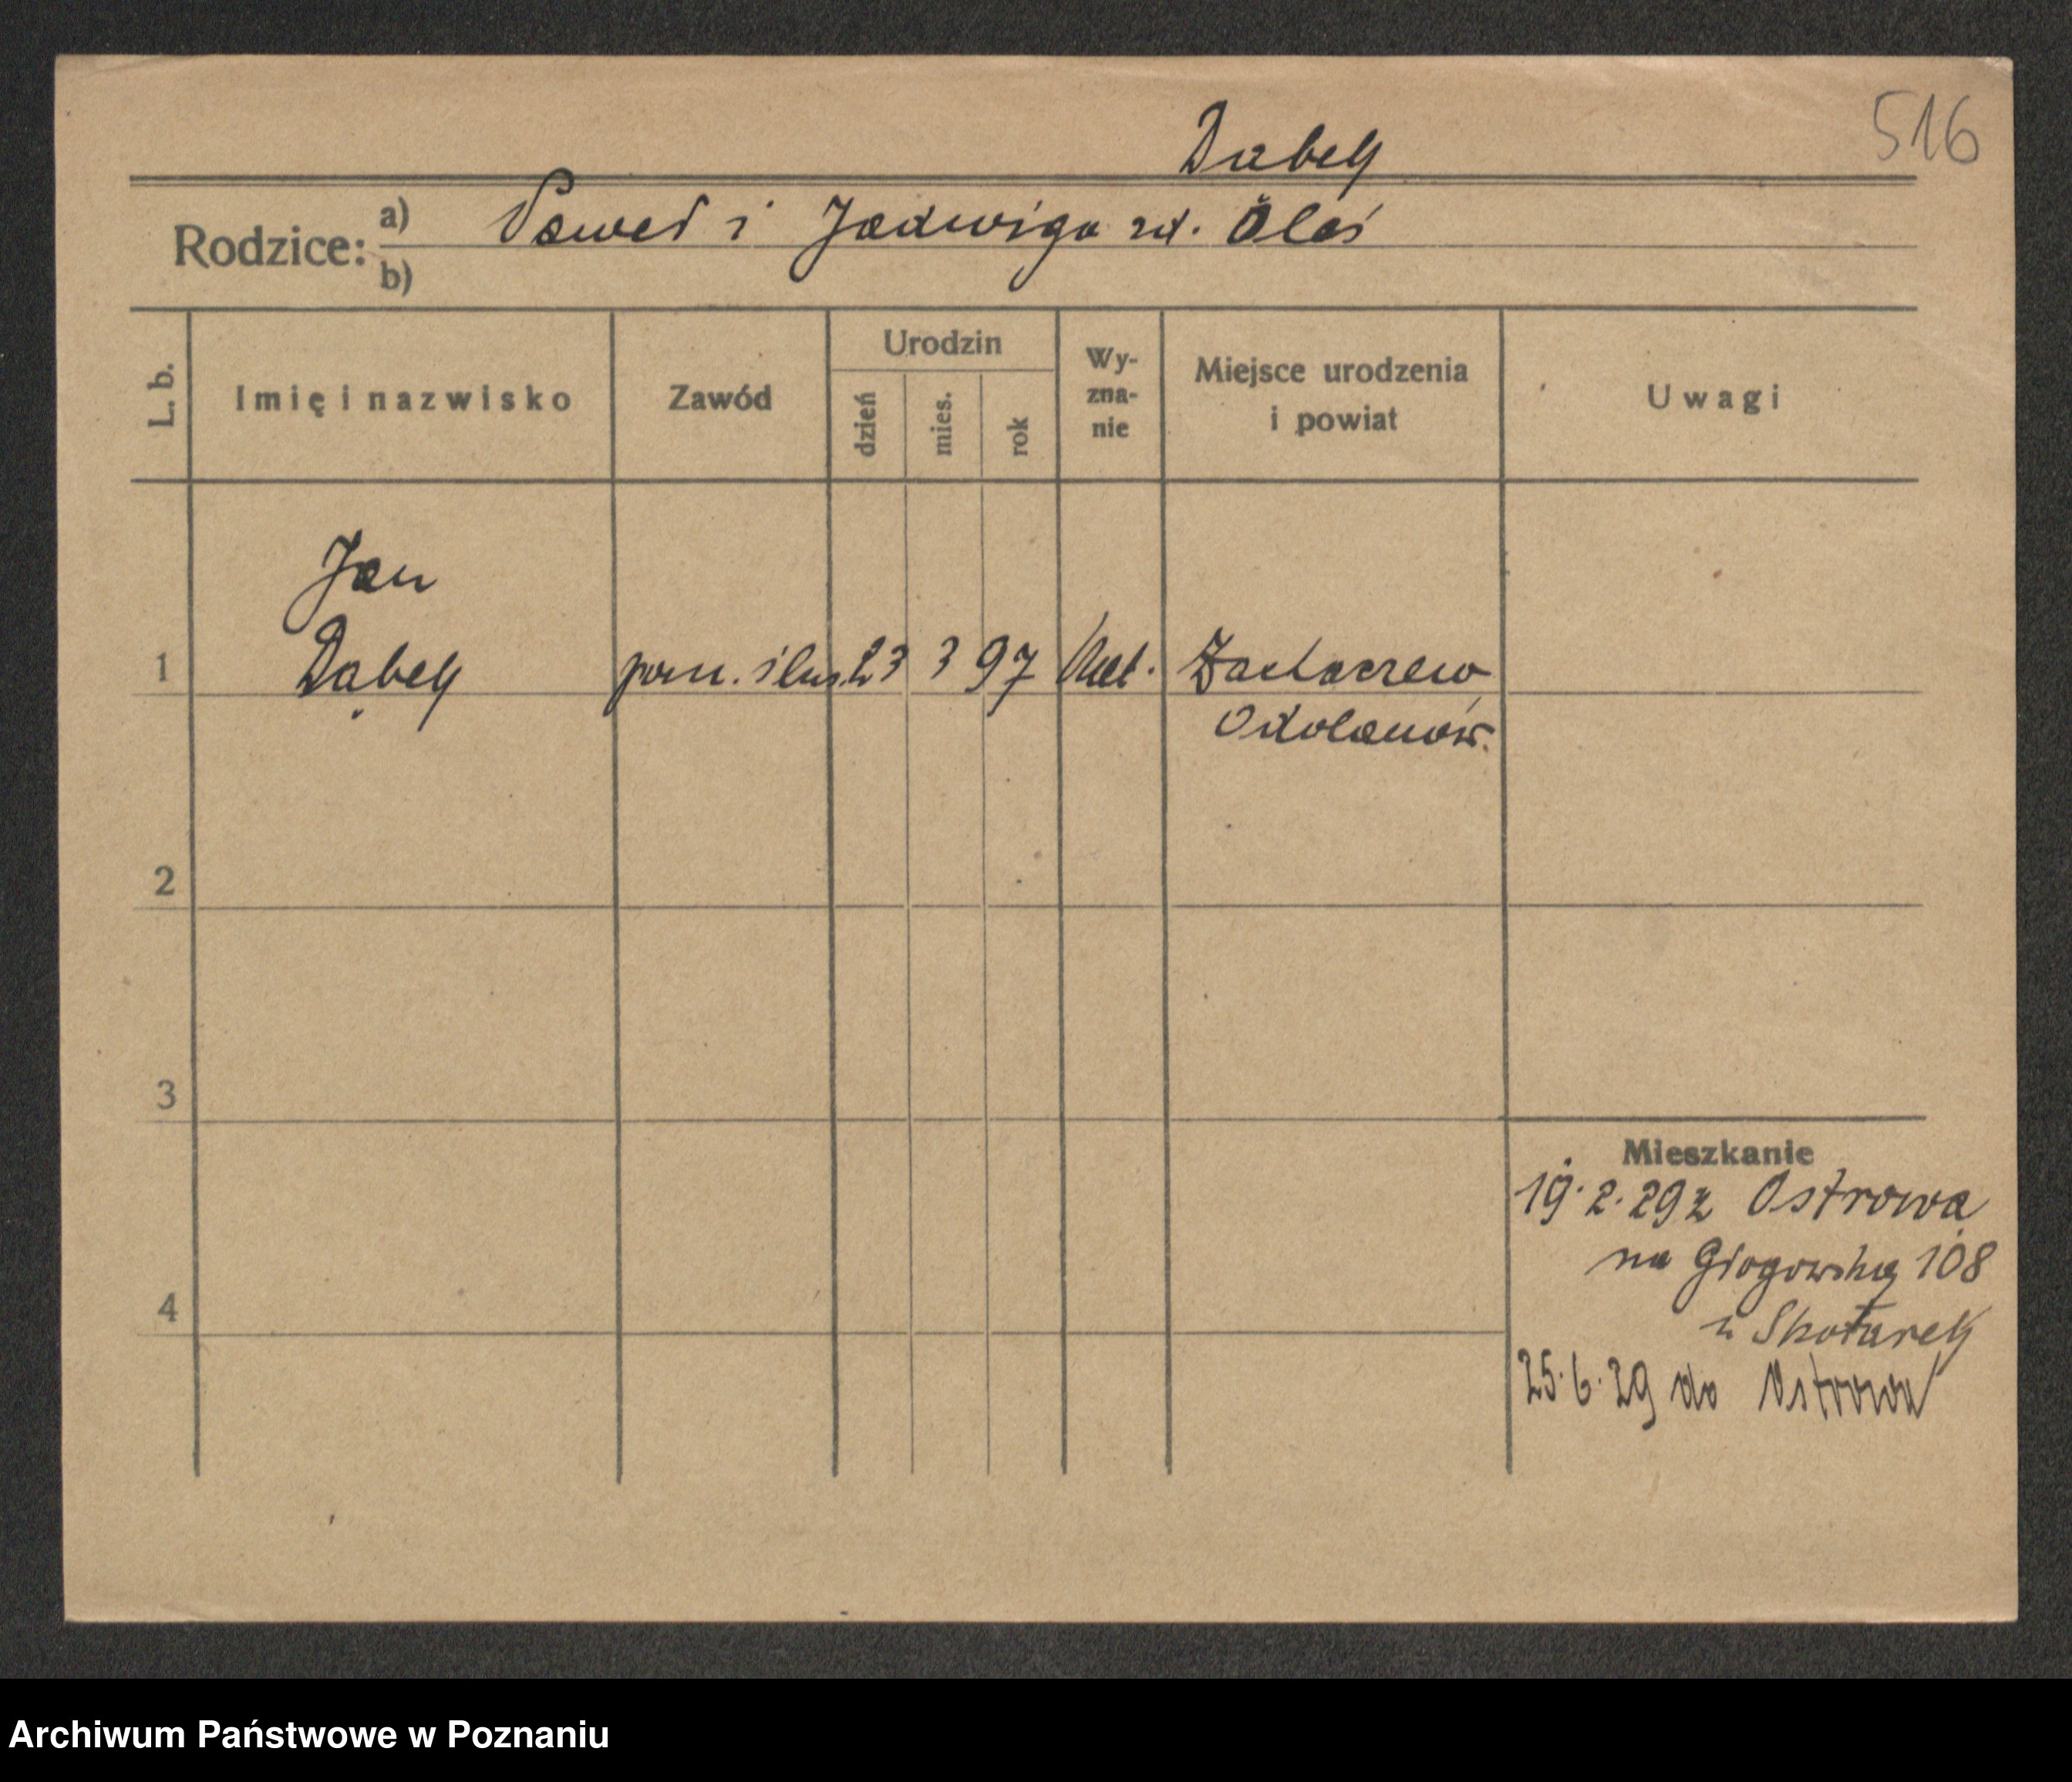 516
Dabek
Rodzice: a) Paweł i Jadwiga rd. Olaś
b)
L. b. Imię i nazwisko Zawód Urodzin dzień mies. rok Wy-zna-nie Miejsce urodzenia i powiat Uwagi
Jan
1 Dąbek pom. ślus. 23 3 97 kat. Zacharzew
Odolanów.
2
3
Mieszkanie
19.2.29 z Ostrowa
na Głogowską 108
4
u Skotarek
25.6.29 do Ostrowa
Archiwum Państwowe w Poznaniu